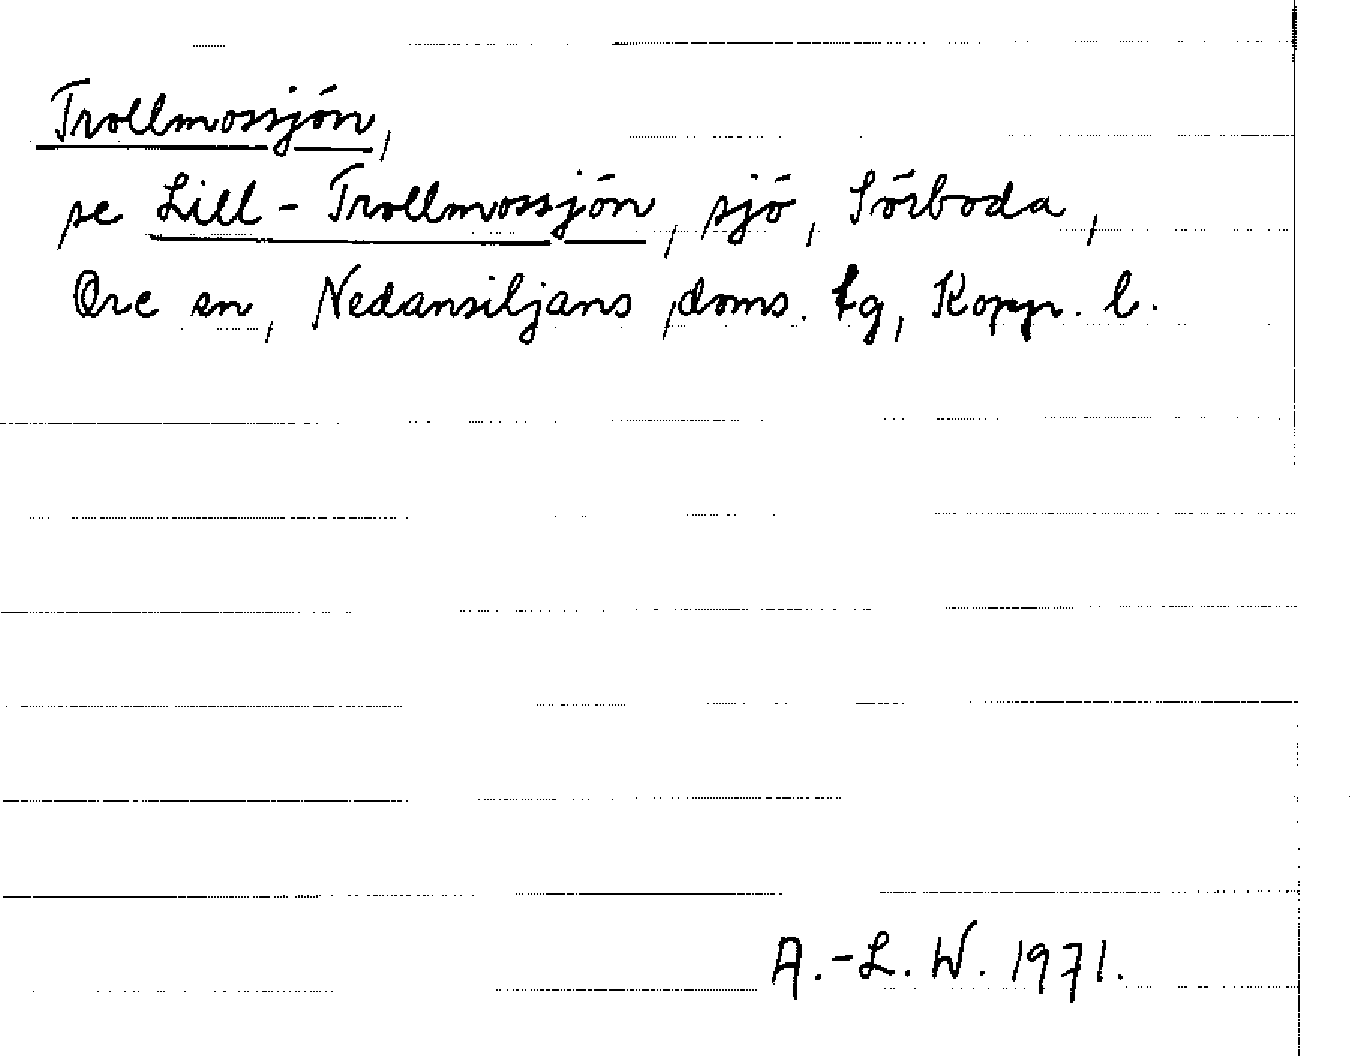 Trollmossjön,
se Lill-Trollmossjön, sjö, Sörboda,
Ore sn, Nedansiljans doms. tg, Kopp. l.
A.-L. W. 1971.